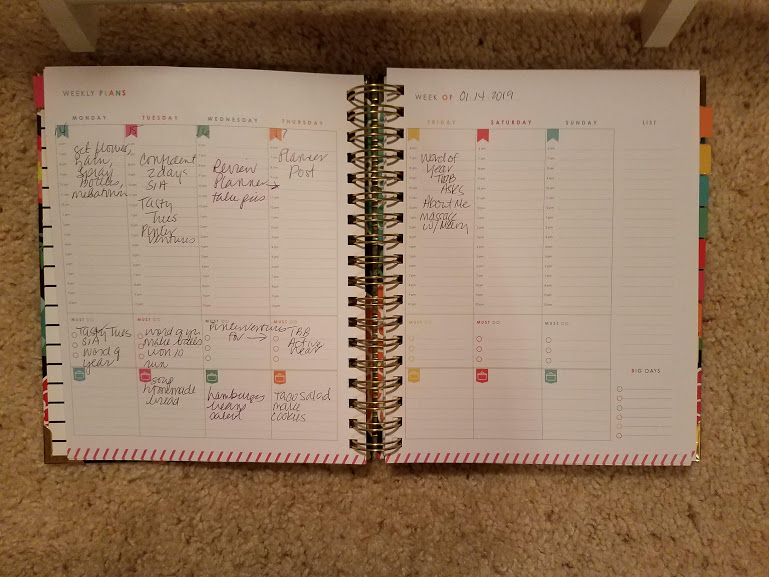 WEEKLY PLANS
MONDAY
TUESDAY
WEDNESDAY
THURSDAY
14
15
16
17
get flowers,
bath,
spray
bottles,
melatonin
confident
2 days
SIA
Tasty
Tues
Pinter
ventures
Review
Planner →
take pics
Planner
Post
MUST DO
Tasty Tues
SIA
word of
year
MUST DO
word of yr
make
run
MUST DO
pinterventures
for →
MUST DO
TBB
Active
Wear
soup
homemade
bread
hamburgers
beans
Taco Salad
make
cookies
WEEK OF 01.14.2019
FRIDAY
SATURDAY
SUNDAY
LIST
Word of
Year
TBB
Asks
About Me
massage
w/ Mary
MUST DO
MUST DO
MUST DO
BIG DAYS